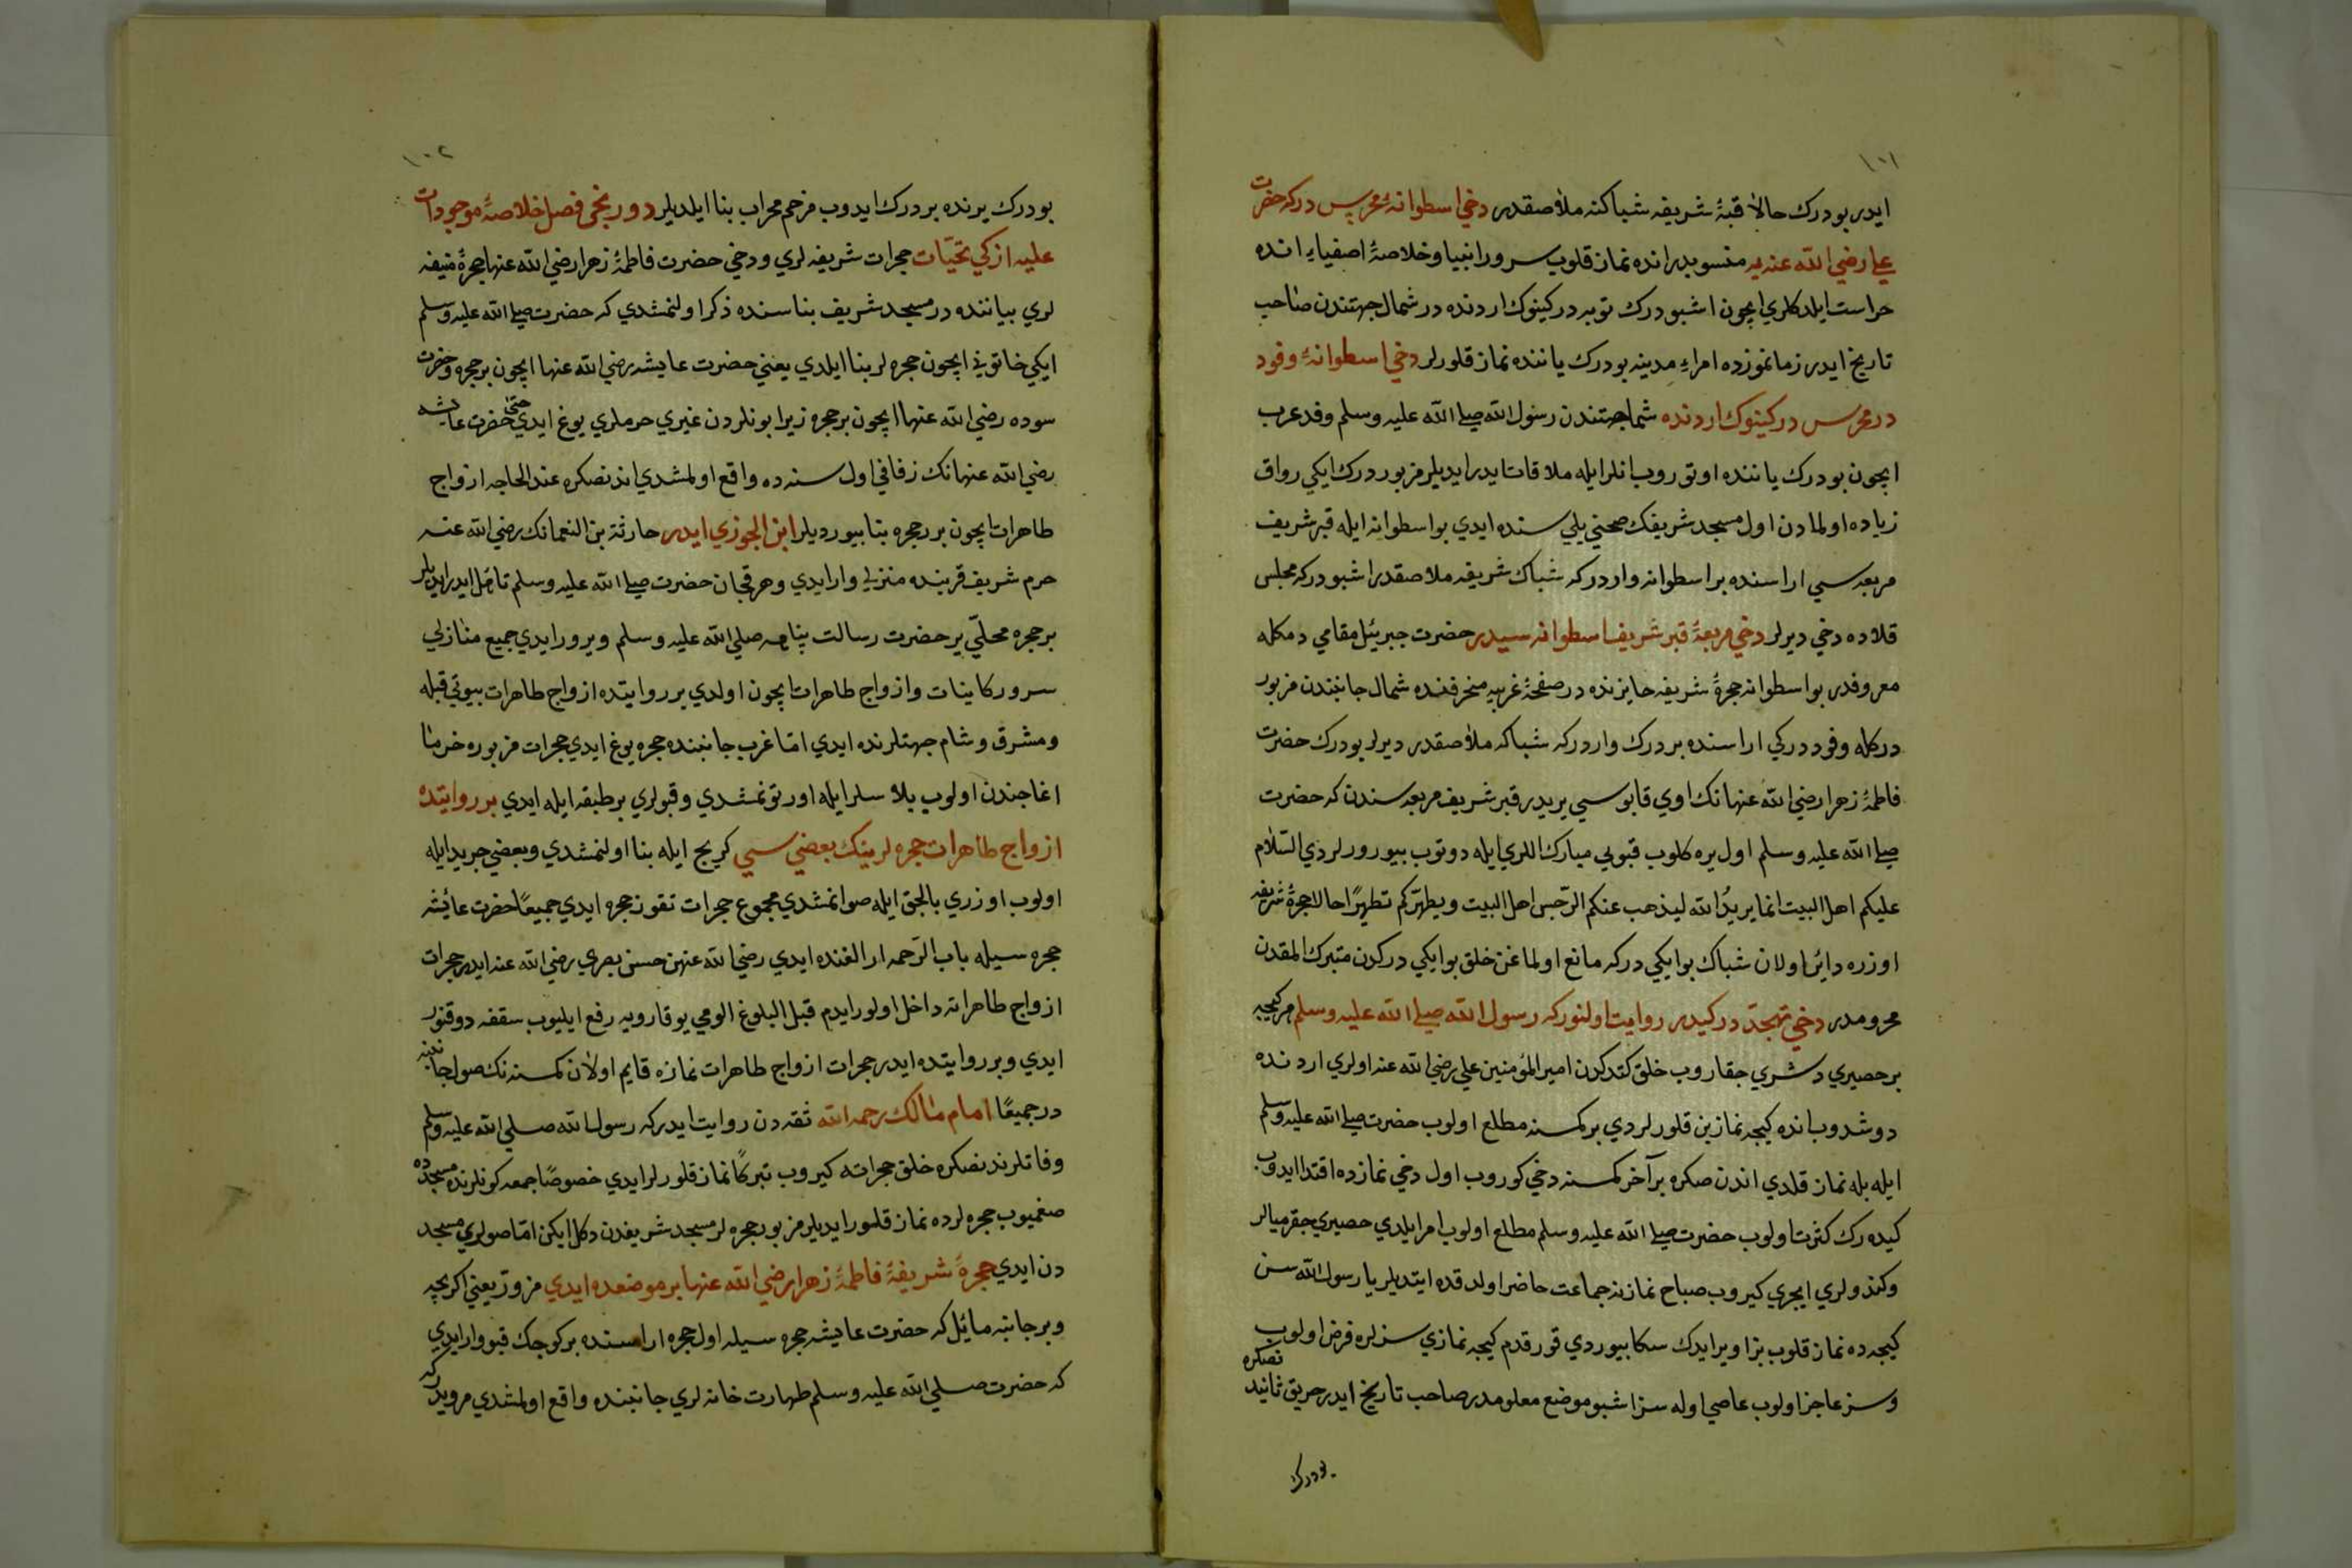 ١٠١
ايدر بو درك حالا قبۀ شريفه شباكنه ملاصقدر دخي اسطوانۀ محرس دركه حضرت
علي رضي الله عنه يه منسوبدر انده نماز قلوب سرور انبيا وخلاصۀ اصفياء انده
حراست ايلدكلري ايچون اشبو درك توبه دركينوك اردنده در شمال جهتندن صاحب
تاريخ ايدر زمانمزده امراء مدينه بو درك ياننده نماز قلورلر دخي اسطوانۀ وفود
در محرس دركينوك اردنده شمال جهتندن رسول الله صلى الله عليه وسلم وفد عرب
ايچون بو درك ياننده اوتوروب انلر ايله ملاقات ايدر ايديلر مزبور درك ايكي رواق
زياده اولمادن اول مسجد شريفك صحني يلي سنده ايدي بو اسطوانه ايله قبر شريف
مربعه سي اراسنده بر اسطوانه واردر كه شباك شريفه ملاصقدر اشبو دركه مجلس
قلاده دخي ديرلر دخي مربعۀ قبر شريف اسطوانه سيدر حضرت جبرئيل مقامي دمكله
معروفدر بو اسطوانه حجرۀ شريفه حايزنده در صفحۀ غربيه منحرفنده شمال جانبندن مزبور
دركله وفود دركي اراسنده بر درك واردركه شباكه ملاصقدر ديرلر بو درك حضرت
فاطمۀ زهرا رضي الله عنهانك اوي قاپوسي يريدر قبر شريف مربعه سندن كه حضرت
صلى الله عليه وسلم اول يره كلوب قبويي مبارك اللري ايله دوتوب بيورورلردي السلام
عليكم اهل البيت انما يريد الله ليذهب عنكم الرجس اهل البيت ويطهركم تطهيرا حالا حجرۀ شريفه
اوزره دائر اولان شباك بو ايكي دركه مانع اولماغن خلق بو ايكي دركدن متبرك المقدن
محرومدر دخي تهجد دركيدر روايت اولنور كه رسول الله صلى الله عليه وسلم هر كيجه
بر حصيري دشري چقاروب خلق كتدكدن امير المؤمنين علي رضي الله عنه اولري اردنده
دوشدوب انده كيجه نمازين قلورلردي بر كمسنه مطلع اولوب حضرت صلى الله عليه وسلم
ايله بله نماز قلدي اندن صكره بر آخر كمسنه دخي كوروب اول دخي نمازده اقتدا ايدوب
كيده رك كثرت اولوب حضرت صلى الله عليه وسلم مطلع اولوب امر ايلدي حصيري چقرميالر
وكندولري ايچري كيروب صباح نمازنه جماعت حاضر اولدقده ايتديلر يا رسول الله سن
كيجه ده نماز قلوب بز اويرايدك سكا بيوردي قورقدم كيجه نمازي سزلره فرض اولوب
وسز عاجز اولوب عاصي اوله سز اشبو موضع معلومدر صاحب تاريخ ايدر حريق ثانيدن صكره
بو درك
١٠٢
بو درك يرنده بر درك ايدوب مرخم محراب بنا ايلديلر دوردنجي فصل خلاصۀ موجودات
عليه ازكي تحيات حجرات شريفه لري ودخي حضرت فاطمۀ زهرا رضي الله عنها حجرۀ منيفه
لري بياننده در مسجد شريف بناسنده ذكر اولنمشدي كه حضرت صلى الله عليه وسلم
ايكي خاتوني ايچون حجره لر بنا ايلدي يعني حضرت عايشه رضي الله عنها ايچون بر حجره وحضرت
سوده رضي الله عنها ايچون بر حجره زيرا بونلردن غيري حرملري يوغ ايدي حتى حضرت عايشه
رضي الله عنهانك زفافي اول سنه ده واقع اولمشدي اندنصكره عند الحاجه ازواج
طاهرات ايچون برر حجره بنا بيورديلر ابن الجوزي ايدر حارثة بن النعمانك رضي الله عنه
حرم شريف قربنده منزلي وارايدي وهرقچان حضرت صلى الله عليه وسلم تاهل ايدر ايديلر
بر حجره محلي ير حضرت رسالت پناهه صلى الله عليه وسلم ويرور ايدي جميع منازلي
سرور كاينات وازواج طاهرات ايچون اولدي بر روايتده ازواج طاهرات بيوتي قبله
ومشرق وشام جهتلرنده ايدي اما غرب جانبنده حجره يوغ ايدي حجرات مزبوره خرما
اغاجندن اولوب پلاسلر ايله اورتونمشدي وقبولري بر طبقه ايله ايدي بر روايتده
ازواج طاهرات حجره لرينك بعضي سي كرپج ايله بنا اولنمشدي وبعضي جريد ايله
اولوب اوزري بالچق ايله صوانمشدي مجموع حجرات تقوز حجره ايدي جميعا حضرت عائشه
حجره سيله باب الرحمه ارالغنده ايدي رضي الله عنهن حسن بصري رضي الله عنه ايدر حجرات
ازواج طاهراته داخل اولورايدم قبل البلوغ المي يوقارويه رفع ايليوب سقفه دوقنور
ايدي وبر روايتده ايدر حجرات ازواج طاهرات نمازه قايم اولان كمسنه نك صول جانبنده
در جميعا امام مالك رحمه الله ثقه دن روايت ايدر كه رسول الله صلى الله عليه وسلم
وفاتلرندنصكره خلق حجراته كيروب تبركا نماز قلورلرايدي خصوصا جمعه كونلرنده مسجده
صغميوب حجره لرده نماز قلور ايديلر مزبور حجره لر مسجد شريفدن دكل ايكن اما صولري مسجد
دن ايدي حجرۀ شريفۀ فاطمۀ زهرا رضي الله عنها بر موضعده ايدي مزور يعني اكريجه
وبر جانبه مائل كه حضرت عايشه حجره سيله اول حجره اراسنده بر كوچك قپو وارايدي
كه حضرت صلى الله عليه وسلم طهارت خانه لري جانبنده واقع اولمشدي مرويدر كه